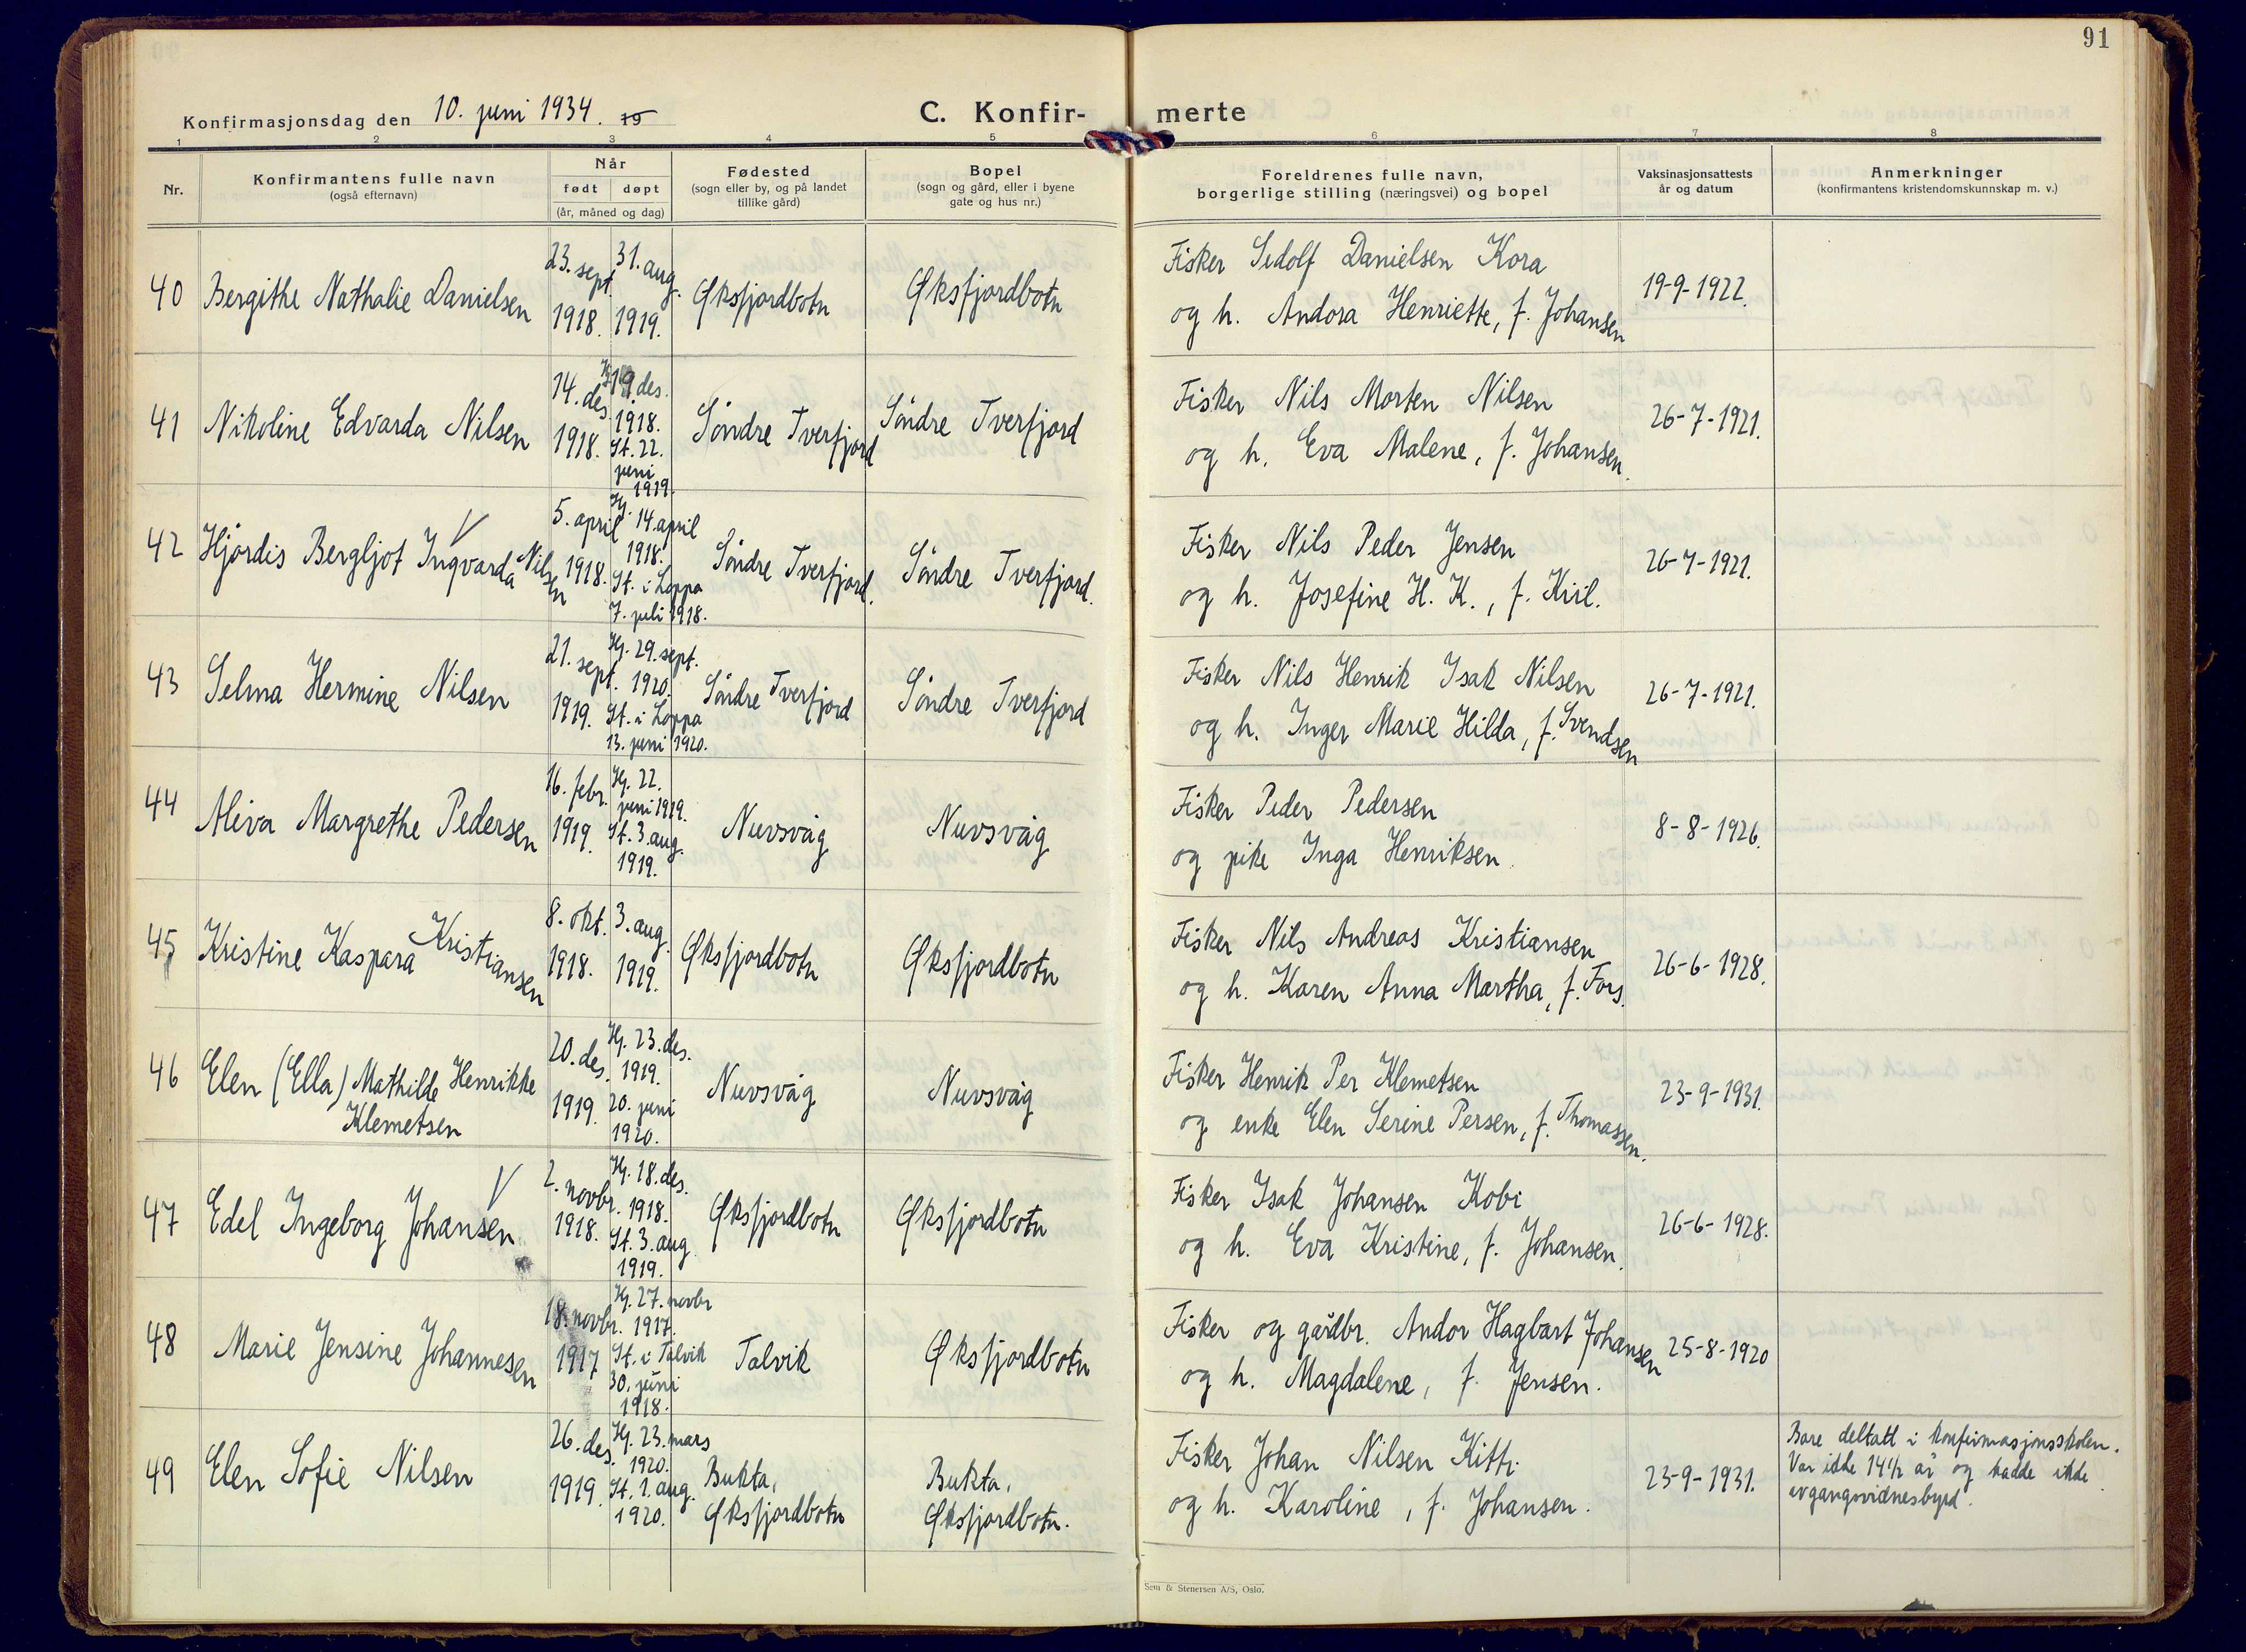 91
Konfirmasjonsdag den 10. juni 1934. 19
C. Konfir- merte
1 2 3 4 5 6 7 8
Nr.
Konfirmantens fulle navn
(også efternavn)
Når
født døpt
(år, måned og dag)
Fødested
(sogn eller by, og på landet
tillike gård)
Bopel
(sogn og gård, eller i byene
gate og hus nr.)
Foreldrenes fulle navn,
borgerlige stilling (næringsvei) og bopel
Vaksinasjonsattests
år og datum
Anmerkninger
(konfirmantens kristendomskunnskap m. v.)
40 Bergithe Nathalie Danielsen
23. sept.
1918.
31. aug.
1919.
Øksfjordbotn
Øksfjordbotn
Fisker Sedolf Danielsen Kora
og h. Andora Henriette, f. Johansen
19-9-1922.
41 Nikoline Edvarda Nilsen
14. des.
1918.
Hj. 19 des.
1918.
St. 22.
juni
1919.
Søndre Tverfjord
Søndre Tverfjord
Fisker Nils Morten Nilsen
og h. Eva Malene, f. Johansen.
26-7-1921.
42 Hjørdis Bergljot Ingvarda Nilsen
5. april
1918.
Hj. 14. april
1918.
St. i Loppa
7. juli 1918.
Søndre Tverfjord.
Søndre Tverfjord.
Fisker Nils Peder Jensen
og h. Josefine H. K., f. Kiil.
26-7-1921.
43 Selma Hermine Nilsen
21. sept.
1919.
Hj. 29. sept.
1920.
St. i Loppa
13. juni 1920.
Søndre Tverfjord
Søndre Tverfjord
Fisker Nils Henrik Isak Nilsen
og h. Inger Marie Hilda, f. Svendsen
26-7-1921.
44 Aliva Margrethe Pedersen
16. febr.
1919.
Hj. 22.
juni 1919.
St. 3. aug.
1919.
Nuvsvåg
Nuvsvåg
Fisker Peder Pedersen
og pike Inga Henriksen.
8-8-1926.
45 Kristine Kaspara Kristiansen
8. okt.
1918.
3. aug.
1919.
Øksfjordbotn
Øksfjordbotn
Fisker Nils Andreas Kristiansen
og h. Karen Anna Martha, f. Fors.
26-6-1928.
46 Elen (Ella) Mathilde Henrikke
Klemetsen
20. des.
1919.
Hj. 23. des.
1919.
20. juni
1920.
Nuvsvåg
Nuvsvåg
Fisker Henrik Per Klemetsen
og enke Elen Serine Persen, f. Thomassen.
23-9-1931.
47 Edel Ingeborg Johansen
2. novbr.
1918.
Hj. 18. des.
1918.
St. 3. aug.
1919.
Øksfjordbotn
Øksfjordbotn
Fisker Isak Johansen Kobi
og h. Eva Kristine, f. Johansen.
26-6-1928.
48 Marie Jensine Johannesen
18. novbr.
1917
Hj. 27. novbr
1917.
St. i Talvik
30. juni
1918.
Talvik
Øksfjordbotn
Fisker og gårdbr. Andor Hagbart Johansen
og h. Magdalene, f. Jensen.
25-8-1920
49 Elen Sofie Nilsen
26. des.
1919.
Hj. 23. mars
1920.
St. 1. aug.
1920.
Bukta,
Øksfjordbotn
Bukta,
Øksfjordbotn.
Fisker Johan Nilsen Kitti
og h. Karoline, f. Johansen.
23-9-1931.
Bare deltatt i konfirmasjonsskolen.
Var ikke 14½ år og hadde ikke
avgangsvidnesbyrd.
Sem & Stenersen A/S, Oslo.